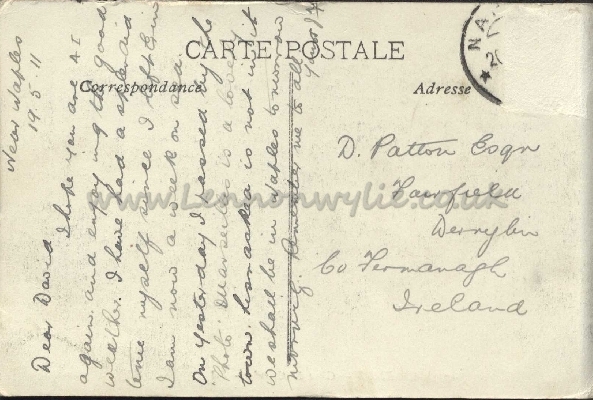 CARTE POSTALE
Correspondance
Adresse
NA
Near Naples
19.5.11
Dear David
I hope you are A I
again and enjoying the good
weather. I have had a splendid
time myself since I left
I am now a week on sea.
On yesterday I passed by the
Photo. Marseilles is a lovely
town. is not in it
We shall be in Naples tomorrow
morning. Remember me to all
D. Patton Esqr
Fairfield
Derrylin
Co Fermanagh
Ireland
www.Lennonwylie.co.uk